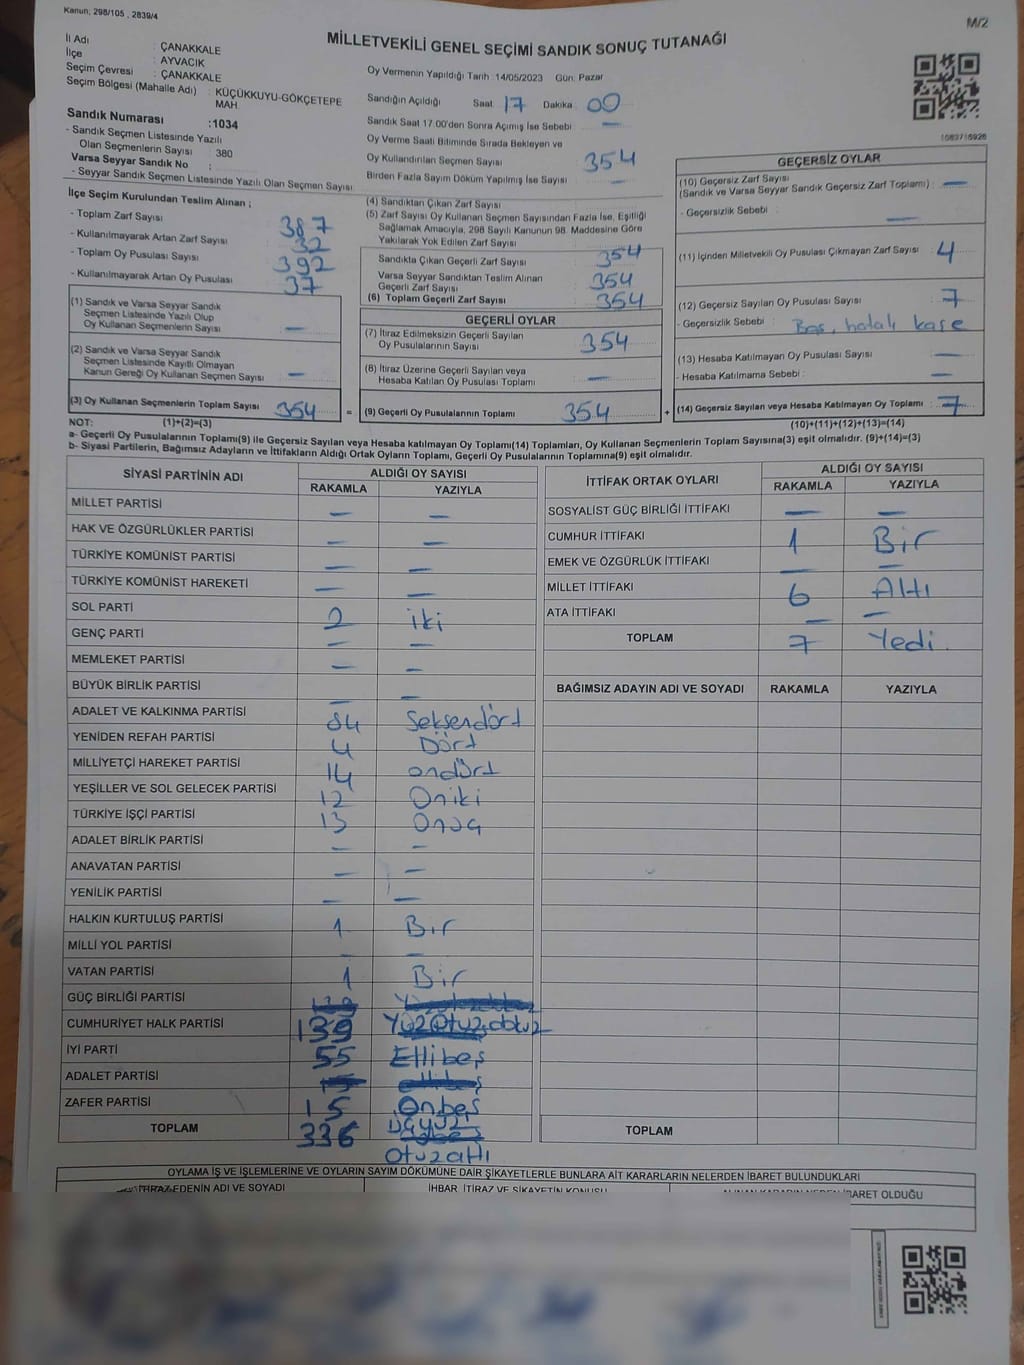 Kanun; 298/105 , 2839/4
M/2
MİLLETVEKİLİ GENEL SEÇİMİ SANDIK SONUÇ TUTANAĞI
İl Adı : ÇANAKKALE
İlçe : AYVACIK
Seçim Çevresi : ÇANAKKALE
Seçim Bölgesi (Mahalle Adı) : KÜÇÜKKUYU-GÖKÇETEPE MAH.
Sandık Numarası :1034
- Sandık Seçmen Listesinde Yazılı
Olan Seçmenlerin Sayısı : 380
Varsa Seyyar Sandık No :
- Seyyar Sandık Seçmen Listesinde Yazılı Olan Seçmen Sayısı
Oy Vermenin Yapıldığı Tarih :14/05/2023 Gün: Pazar
Sandığın Açıldığı Saat 17 Dakika : 00
Sandık Saat 17.00'den Sonra Açımış İse Sebebi : —
Oy Verme Saati Bitiminde Sırada Bekleyen ve
Oy Kullandırılan Seçmen Sayısı : 354
Birden Fazla Sayım Döküm Yapılmış İse Sayısı : —
1083716926
İlçe Seçim Kurulundan Teslim Alınan ;
- Toplam Zarf Sayısı : 387
- Kullanılmayarak Artan Zarf Sayısı : 32
- Toplam Oy Pusulası Sayısı : 392
- Kullanılmayarak Artan Oy Pusulası : 37
(1) Sandık ve Varsa Seyyar Sandık
Seçmen Listesinde Yazılı Olup
Oy Kullanan Seçmenlerin Sayısı : —
(2) Sandık ve Varsa Seyyar Sandık
Seçmen Listesinde Kayıtlı Olmayan
Kanun Gereği Oy Kullanan Seçmen Sayısı : —
(3) Oy Kullanan Seçmenlerin Toplam Sayısı : 354
(4) Sandıktan Çıkan Zarf Sayısı :
(5) Zarf Sayısı Oy Kullanan Seçmen Sayısından Fazla İse, Eşitliği
Sağlamak Amacıyla, 298 Sayılı Kanunun 98. Maddesine Göre
Yakılarak Yok Edilen Zarf Sayısı :
Sandıkta Çıkan Geçerli Zarf Sayısı : 354
Varsa Seyyar Sandıktan Teslim Alınan
Geçerli Zarf Sayısı : 354
(6) Toplam Geçerli Zarf Sayısı : 354
GEÇERLİ OYLAR
(7) İtiraz Edilmeksizin Geçerli Sayılan
Oy Pusulalarının Sayısı : 354
(8) İtiraz Üzerine Geçerli Sayılan veya
Hesaba Katılan Oy Pusulası Toplamı : —
= (9) Geçerli Oy Pusulalarının Toplamı : 354 +
GEÇERSİZ OYLAR
(10) Geçersiz Zarf Sayısı
(Sandık ve Varsa Seyyar Sandık Geçersiz Zarf Toplamı) : —
- Geçersizlik Sebebi : —
(11) İçinden Milletvekili Oy Pusulası Çıkmayan Zarf Sayısı : 4
(12) Geçersiz Sayılan Oy Pusulası Sayısı : 7
- Geçersizlik Sebebi : Boş, hatalı kaşe
(13) Hesaba Katılmayan Oy Pusulası Sayısı : —
- Hesaba Katılmama Sebebi : —
(14) Geçersiz Sayılan veya Hesaba Katılmayan Oy Toplamı : 7
NOT: (1)+(2)=(3) (10)+(11)+(12)+(13)=(14)
a- Geçerli Oy Pusulalarının Toplamı(9) ile Geçersiz Sayılan veya Hesaba katılmayan Oy Toplamı(14) Toplamları, Oy Kullanan Seçmenlerin Toplam Sayısına(3) eşit olmalıdır. (9)+(14)=(3)
b- Siyasi Partilerin, Bağımsız Adayların ve İttifakların Aldığı Ortak Oyların Toplamı, Geçerli Oy Pusulalarının Toplamına(9) eşit olmalıdır.
SİYASİ PARTİNİN ADI ALDIĞI OY SAYISI
RAKAMLA YAZIYLA
MİLLET PARTİSİ — —
HAK VE ÖZGÜRLÜKLER PARTİSİ — —
TÜRKİYE KOMÜNİST PARTİSİ — —
TÜRKİYE KOMÜNİST HAREKETİ — —
SOL PARTİ 2 iki
GENÇ PARTİ — —
MEMLEKET PARTİSİ — —
BÜYÜK BİRLİK PARTİSİ — —
ADALET VE KALKINMA PARTİSİ 84 Seksendört
YENİDEN REFAH PARTİSİ 4 Dört
MİLLİYETÇİ HAREKET PARTİSİ 14 ondört
YEŞİLLER VE SOL GELECEK PARTİSİ 12 Oniki
TÜRKİYE İŞÇİ PARTİSİ 13 Onüç
ADALET BİRLİK PARTİSİ — —
ANAVATAN PARTİSİ — —
YENİLİK PARTİSİ — —
HALKIN KURTULUŞ PARTİSİ 1 Bir
MİLLİ YOL PARTİSİ — —
VATAN PARTİSİ 1 Bir
GÜÇ BİRLİĞİ PARTİSİ
CUMHURİYET HALK PARTİSİ 139 Yüzotuzdokuz
İYİ PARTİ 55 Ellibeş
ADALET PARTİSİ
ZAFER PARTİSİ 15 Onbeş
TOPLAM 336 Üçyüz
Otuzaltı
İTTİFAK ORTAK OYLARI ALDIĞI OY SAYISI
RAKAMLA YAZIYLA
SOSYALİST GÜÇ BİRLİĞİ İTTİFAKI — —
CUMHUR İTTİFAKI 1 Bir
EMEK VE ÖZGÜRLÜK İTTİFAKI — —
MİLLET İTTİFAKI 6 Altı
ATA İTTİFAKI — —
TOPLAM 7 Yedi.
BAĞIMSIZ ADAYIN ADI VE SOYADI RAKAMLA YAZIYLA
TOPLAM
OYLAMA İŞ VE İŞLEMLERİNE VE OYLARIN SAYIM DÖKÜMÜNE DAİR ŞİKAYETLERLE BUNLARA AİT KARARLARIN NELERDEN İBARET BULUNDUKLARI
İTİRAZ EDENİN ADI VE SOYADI İHBAR, İTİRAZ VE ŞİKAYETİN KONUSU ALINAN KARARIN NEDEN İBARET OLDUĞU